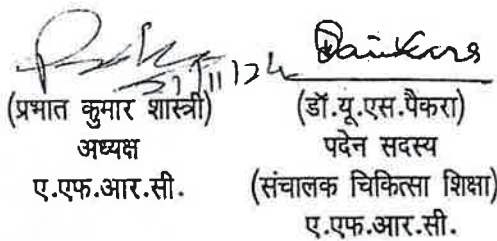 Paikara
(प्रभात कुमार शास्त्री)
अध्यक्ष
ए.एफ.आर.सी.
(डॉ.यू.एस.पैकरा)
पदेन सदस्य
(संचालक चिकित्सा शिक्षा)
ए.एफ.आर.सी.